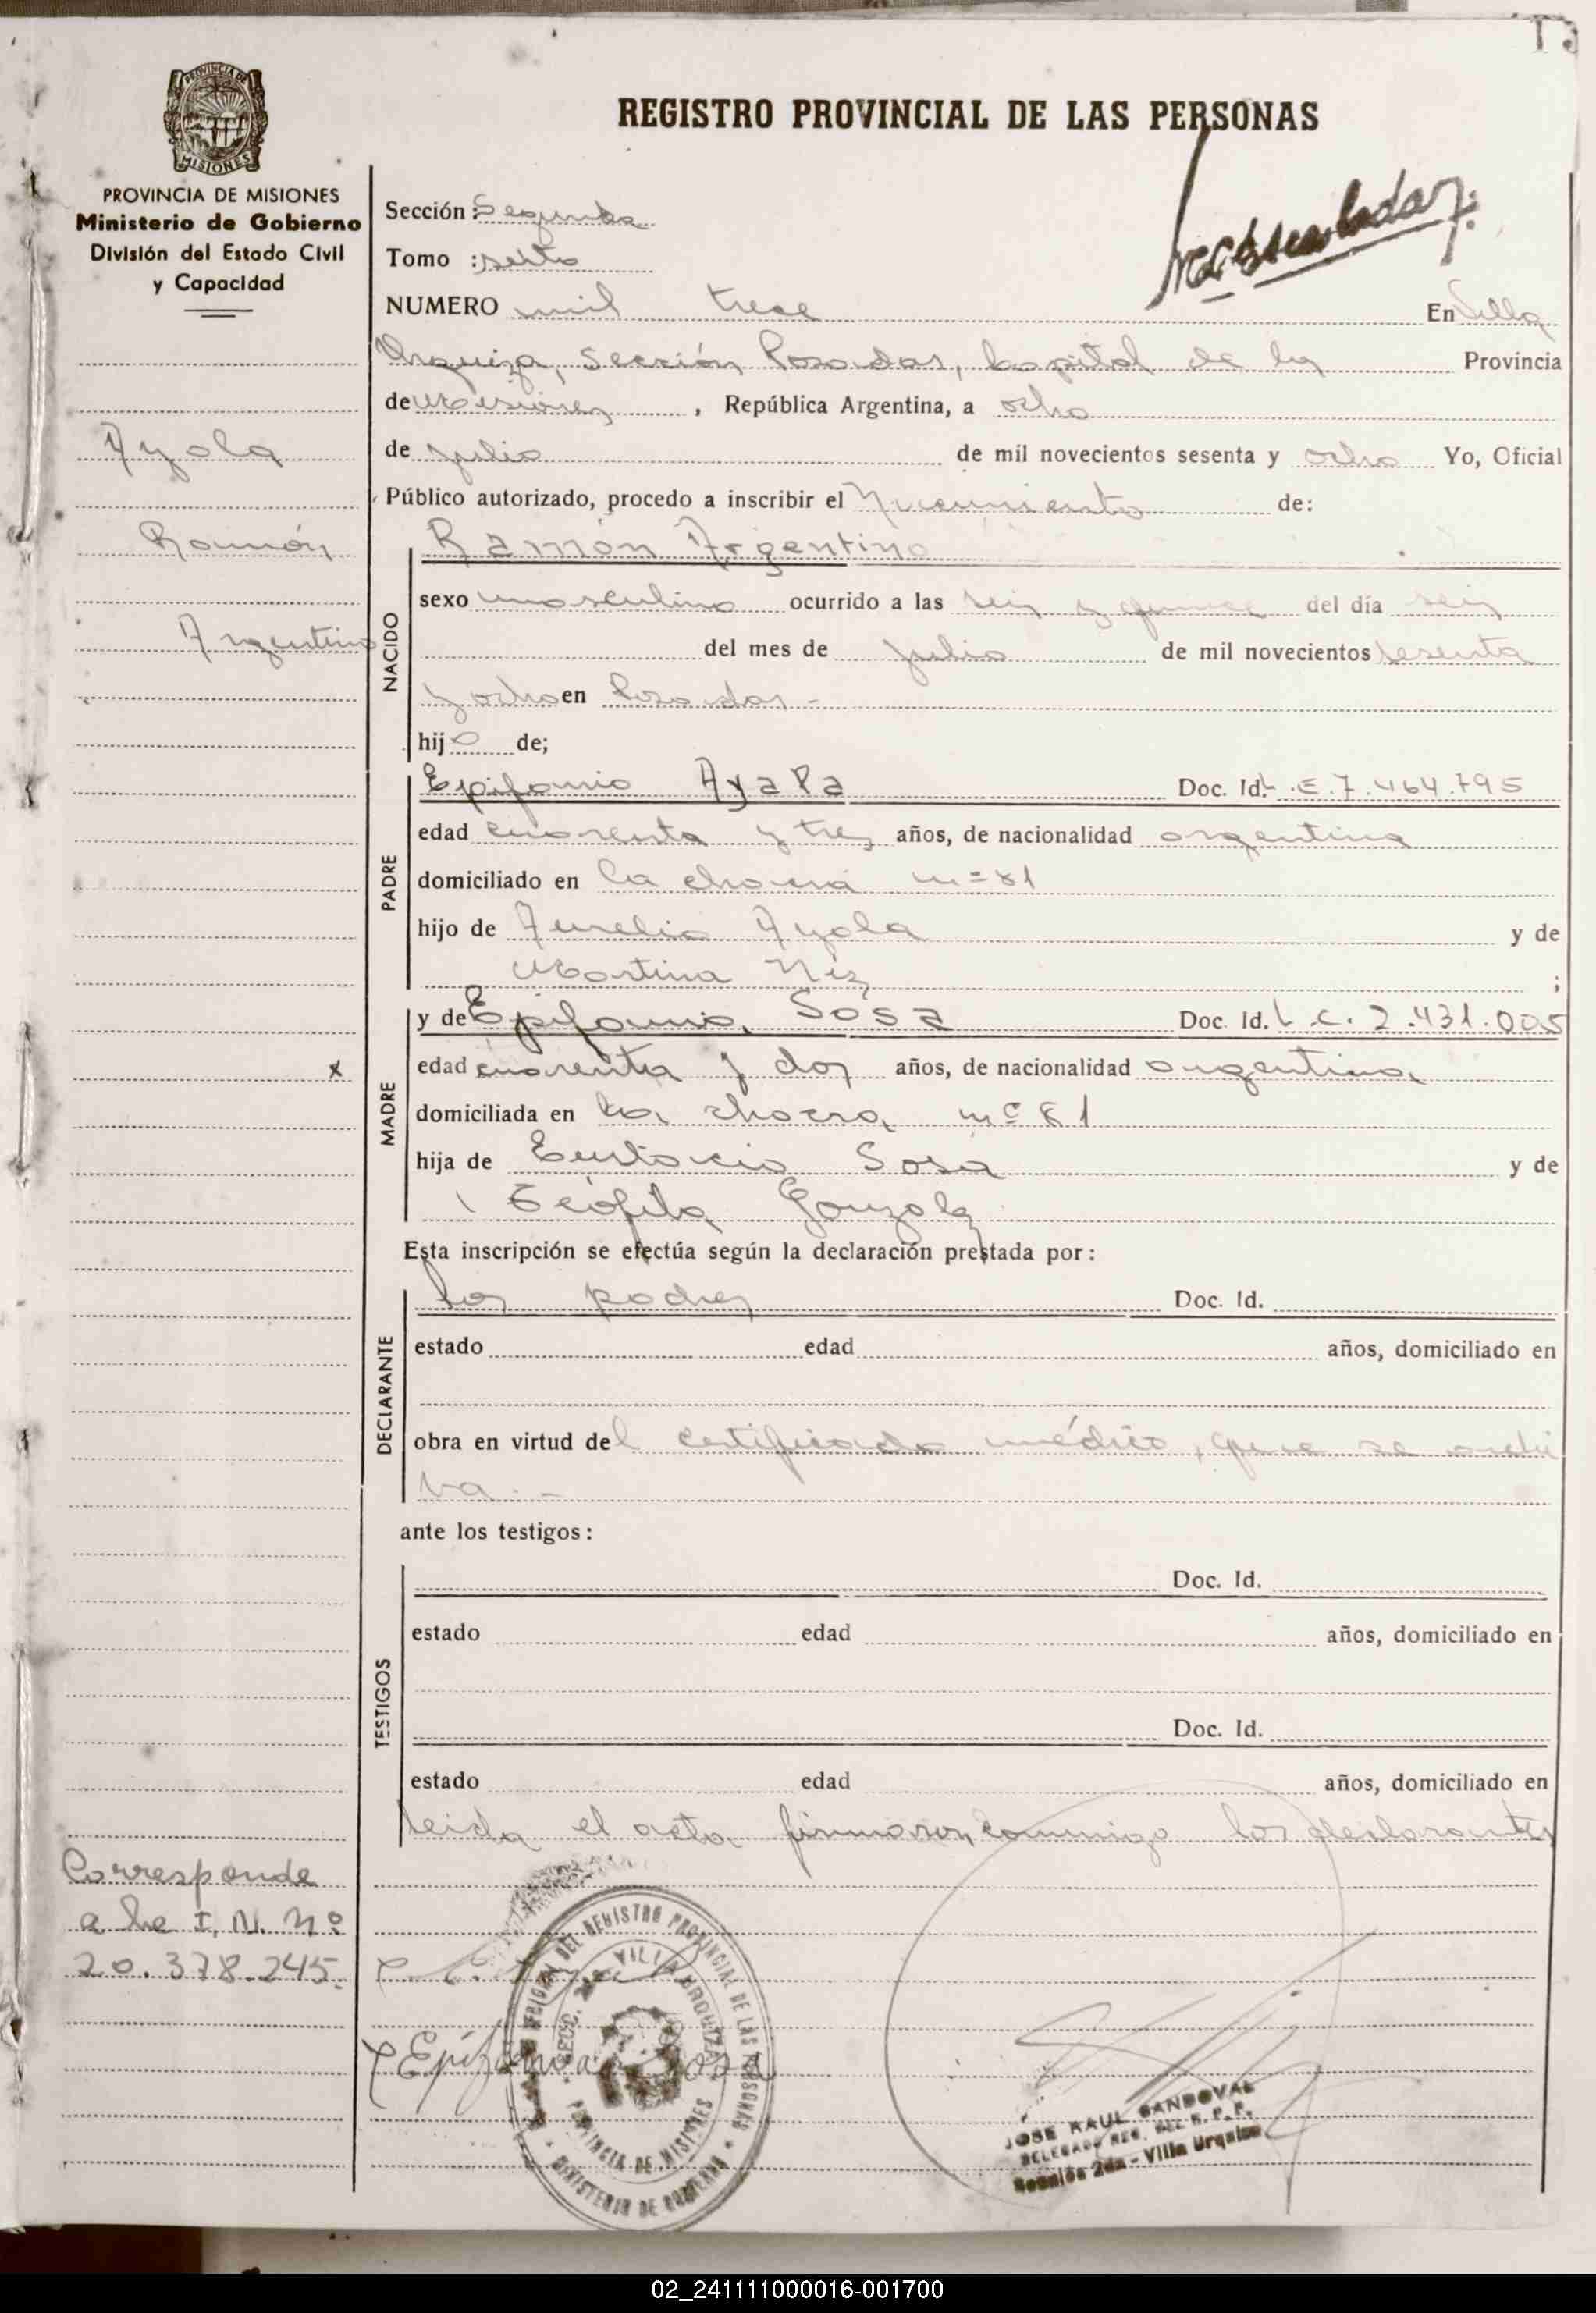 REGISTRO PROVINCIAL DE LAS PERSONAS
PROVINCIA DE
MISIONES
PROVINCIA DE MISIONES
Ministerio de Gobierno
División del Estado Civil
y Capacidad
Sección: Segunda
Tomo : sexto
NUMERO mil trece En Villa
Urquiza, Sección Posadas, Capital de la Provincia
de Misiones, República Argentina, a ocho
de julio de mil novecientos sesenta y ocho Yo, Oficial
Público autorizado, procedo a inscribir el Nacimiento de:
Ayala
Ramón
Argentino
NACIDO
Ramón Argentino
sexo masculino ocurrido a las seis y quince del día seis
del mes de julio de mil novecientos sesenta
y ocho en Posadas -
hijo de;
PADRE
Epifanio Ayala Doc. Id. L.E.7.464.795
edad cuarenta y tres años, de nacionalidad argentina
domiciliado en la chacra nº 81
hijo de Aurelio Ayala y de
Martina Niz ;
MADRE
y de Epifania Sosa Doc. Id. L.C. 2.431.005
x
edad cuarenta y dos años, de nacionalidad argentina
domiciliada en la chacra nº 81
hija de Eustacio Sosa y de
Teófila Gonzalez
Esta inscripción se efectúa según la declaración prestada por:
DECLARANTE
los padres Doc. Id.
estado edad años, domiciliado en
obra en virtud del certificado médico, que se archi
va. -
ante los testigos:
TESTIGOS
Doc. Id.
estado edad años, domiciliado en
Doc. Id.
estado edad años, domiciliado en
leida el acta firmaron conmigo los declarantes
Corresponde
a la I. N. Nº
20.378.245.
Epifania Sosa
DEL REGISTRO PROVINCIAL DE LAS PERSONAS
SECC. 2da VILLA URQUIZA
PROVINCIA DE MISIONES
MINISTERIO DE GOBIERNO
JOSE RAUL SANDOVAL
DELEGADO REG. DEL R. P. P.
Sección 2da - Villa Urquiza
02_241111000016-001700